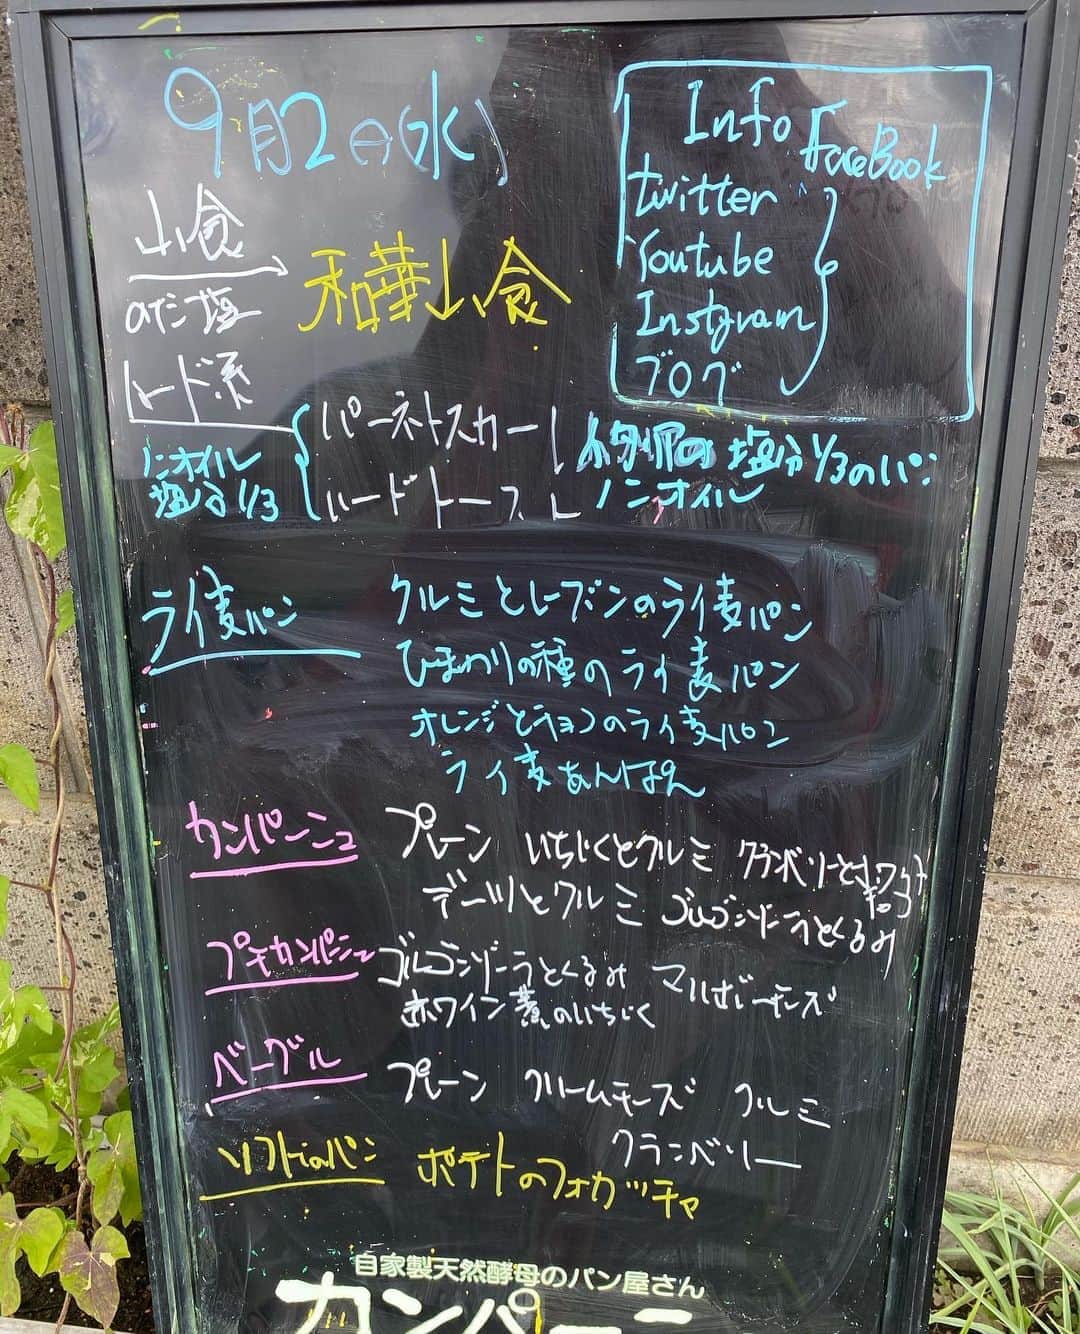 9月2日(水)
Info FaceBook
twitter
Youtube
Instgram
ブログ
山食
和華山食
のだ塩
ハード系
パーネトスカーレ
塩分1/3のパン
ノンオイル
塩分1/3
ハードトースト
ノンオイル
ライ麦パン
クルミとレーズンのライ麦パン
ひまわりの種のライ麦パン
オレンジとチョコのライ麦パン
ライ麦あんぱん
カンパーニュ
プレーン いちじくとクルミ クランベリーとホワイトチョコ
デーツとクルミ ゴルゴンゾーラとくるみ
プチカンパーニュ
ゴルゴンゾーラとくるみ マルボーチーズ
赤ワイン煮のいちじく
ベーグル
プレーン クリームチーズ クルミ
クランベリー
ソフトなパン ポテトのフォカッチャ
自家製天然酵母のパン屋さん
カンパーニ